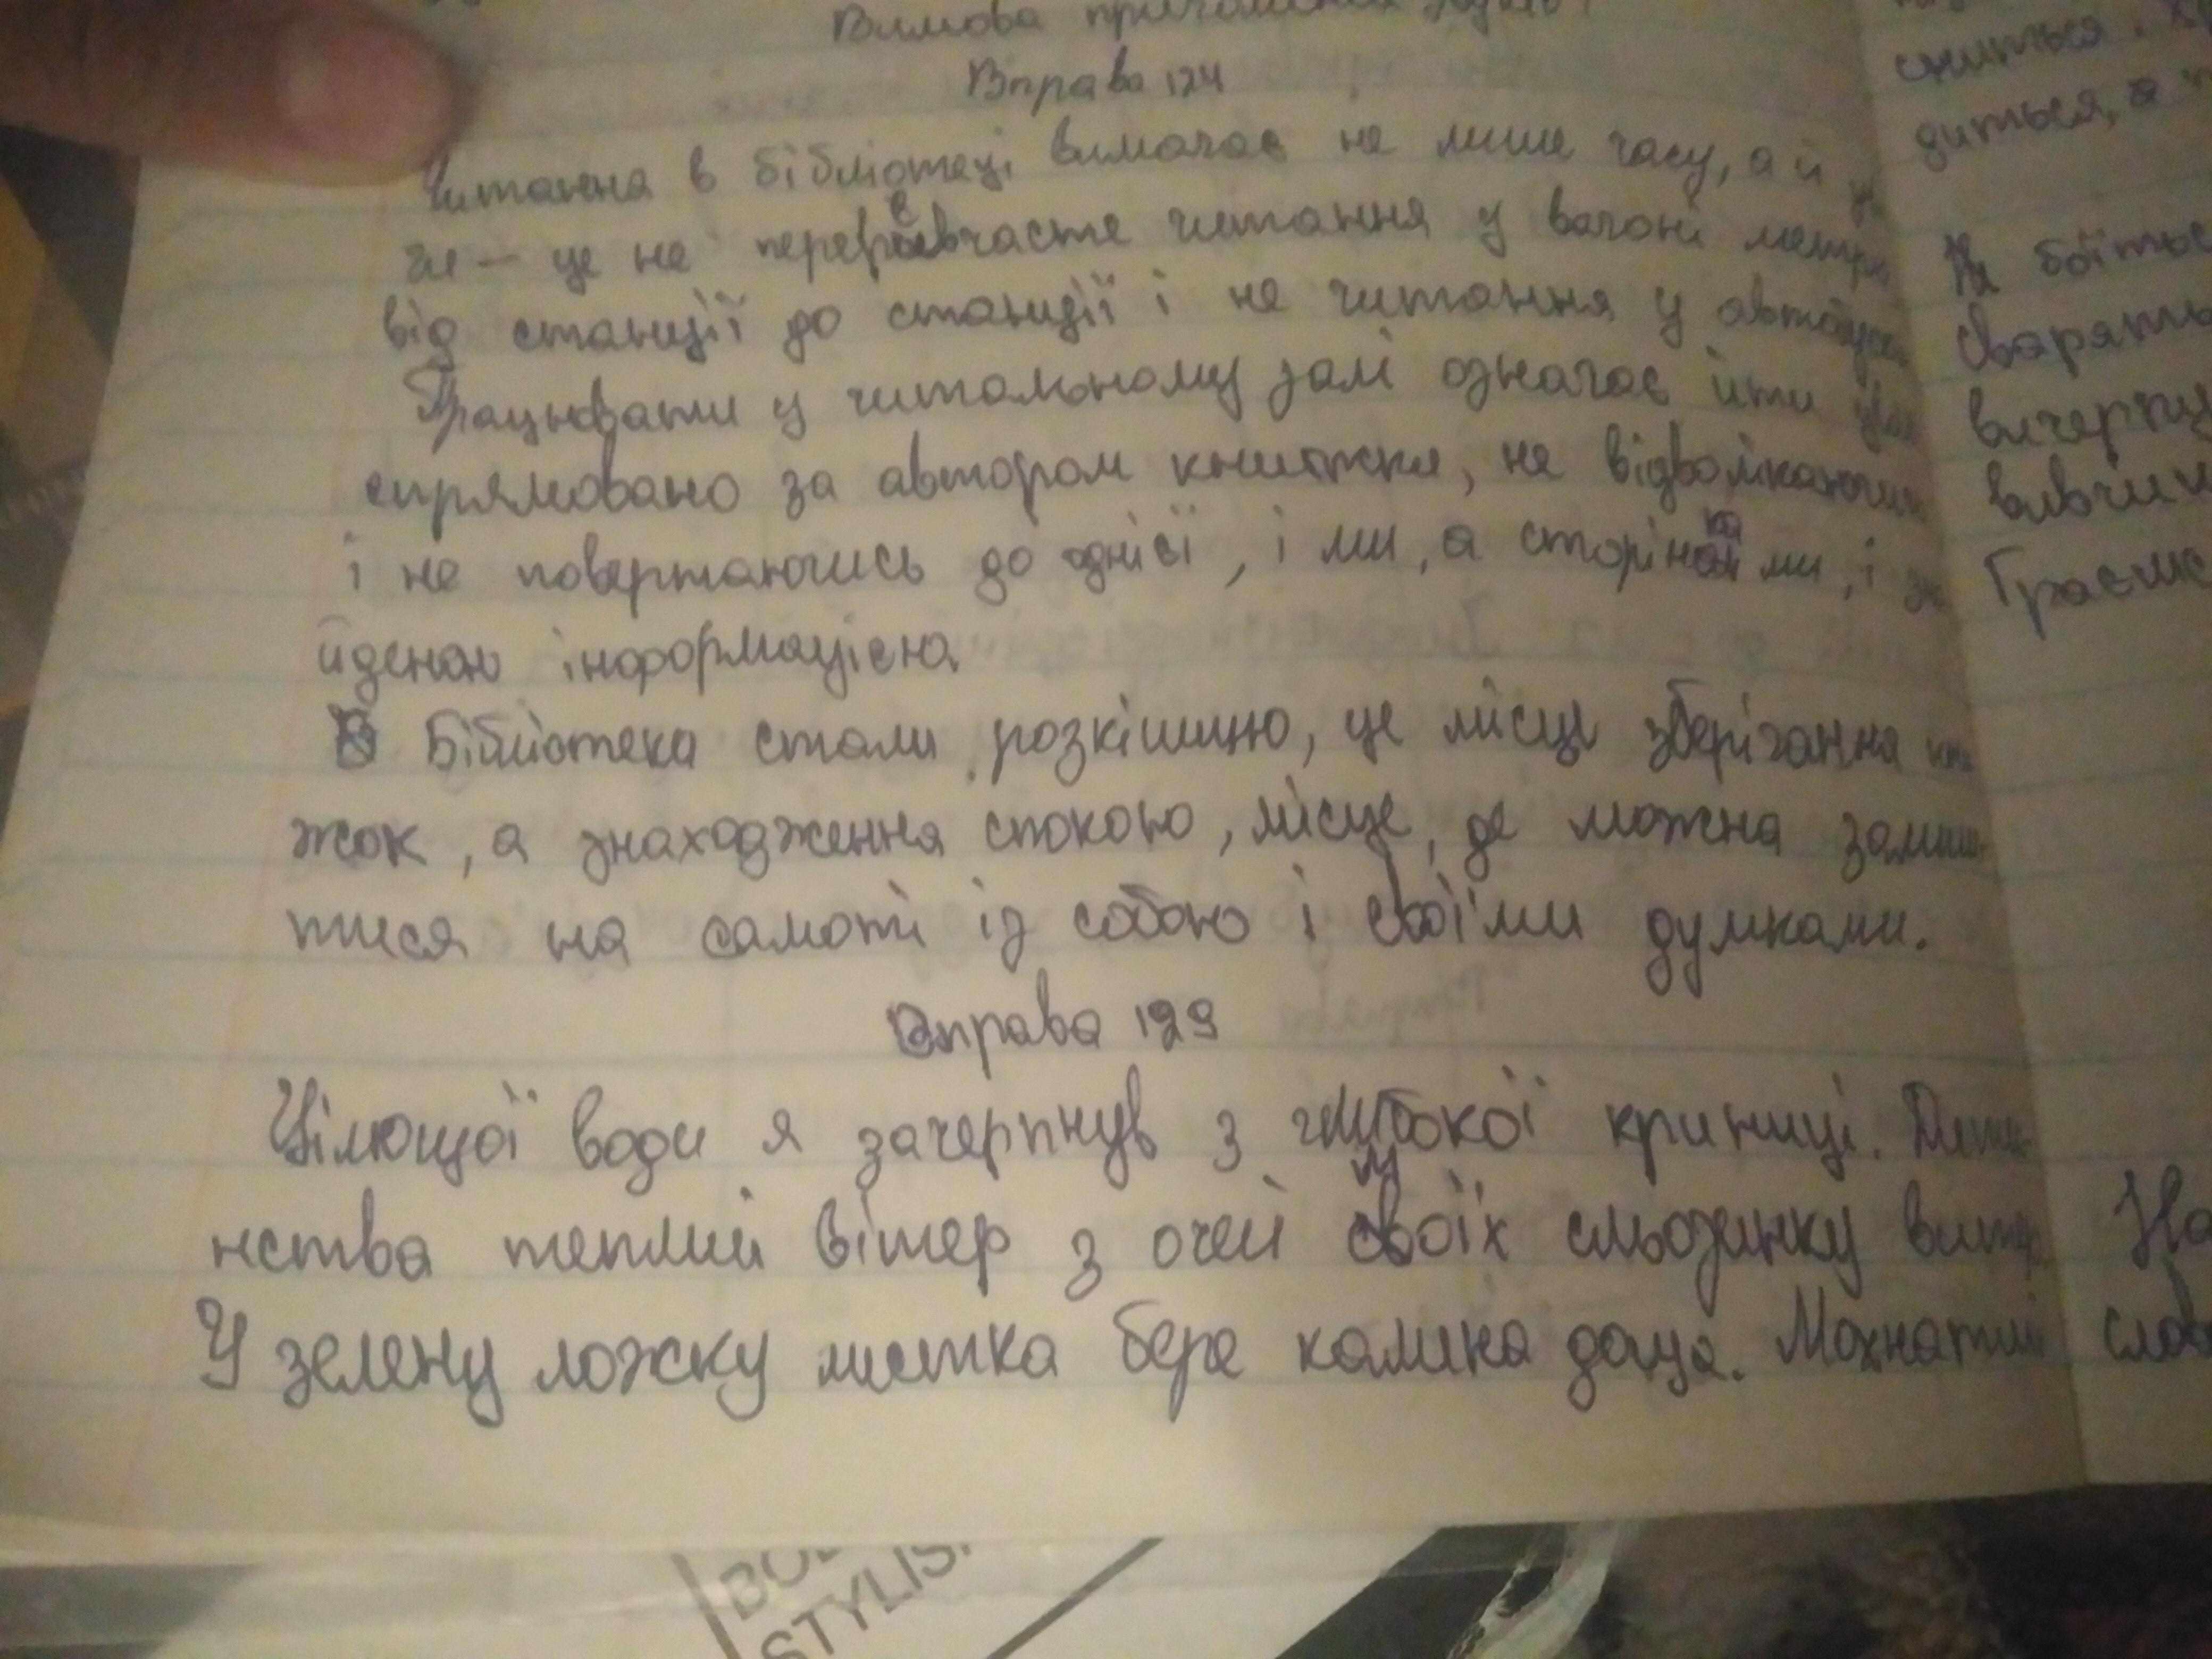 Вимова приголосних звуків
Вправа 124
Читання в бібліотеці вимагає не лише часу, а й
ги — це не переревчасте читання у вагоні метро
від станції до станції і не читання у автобусі
Працювати у читальному залі означає йти
спрямовано за автором книжки, не відволікаючись
і не повертаючись до однієї, і ми, а сторінками, і
йденою інформацією
Бібліотека стали розкішшю, це місце зберігання
жок, а знаходження спокою, місце, де можна
тися на самоті із собою і своїми думками.
Вправа 129
Цілющої води я зачерпнув з глибокої криниці.
нства теплий вітер з очей моїх сльозинку
У зелену ложку листка бере калина доща. Мохнатий
сниться.
диться,
боїться
сварять
Граємо
На
BO
STYLIS